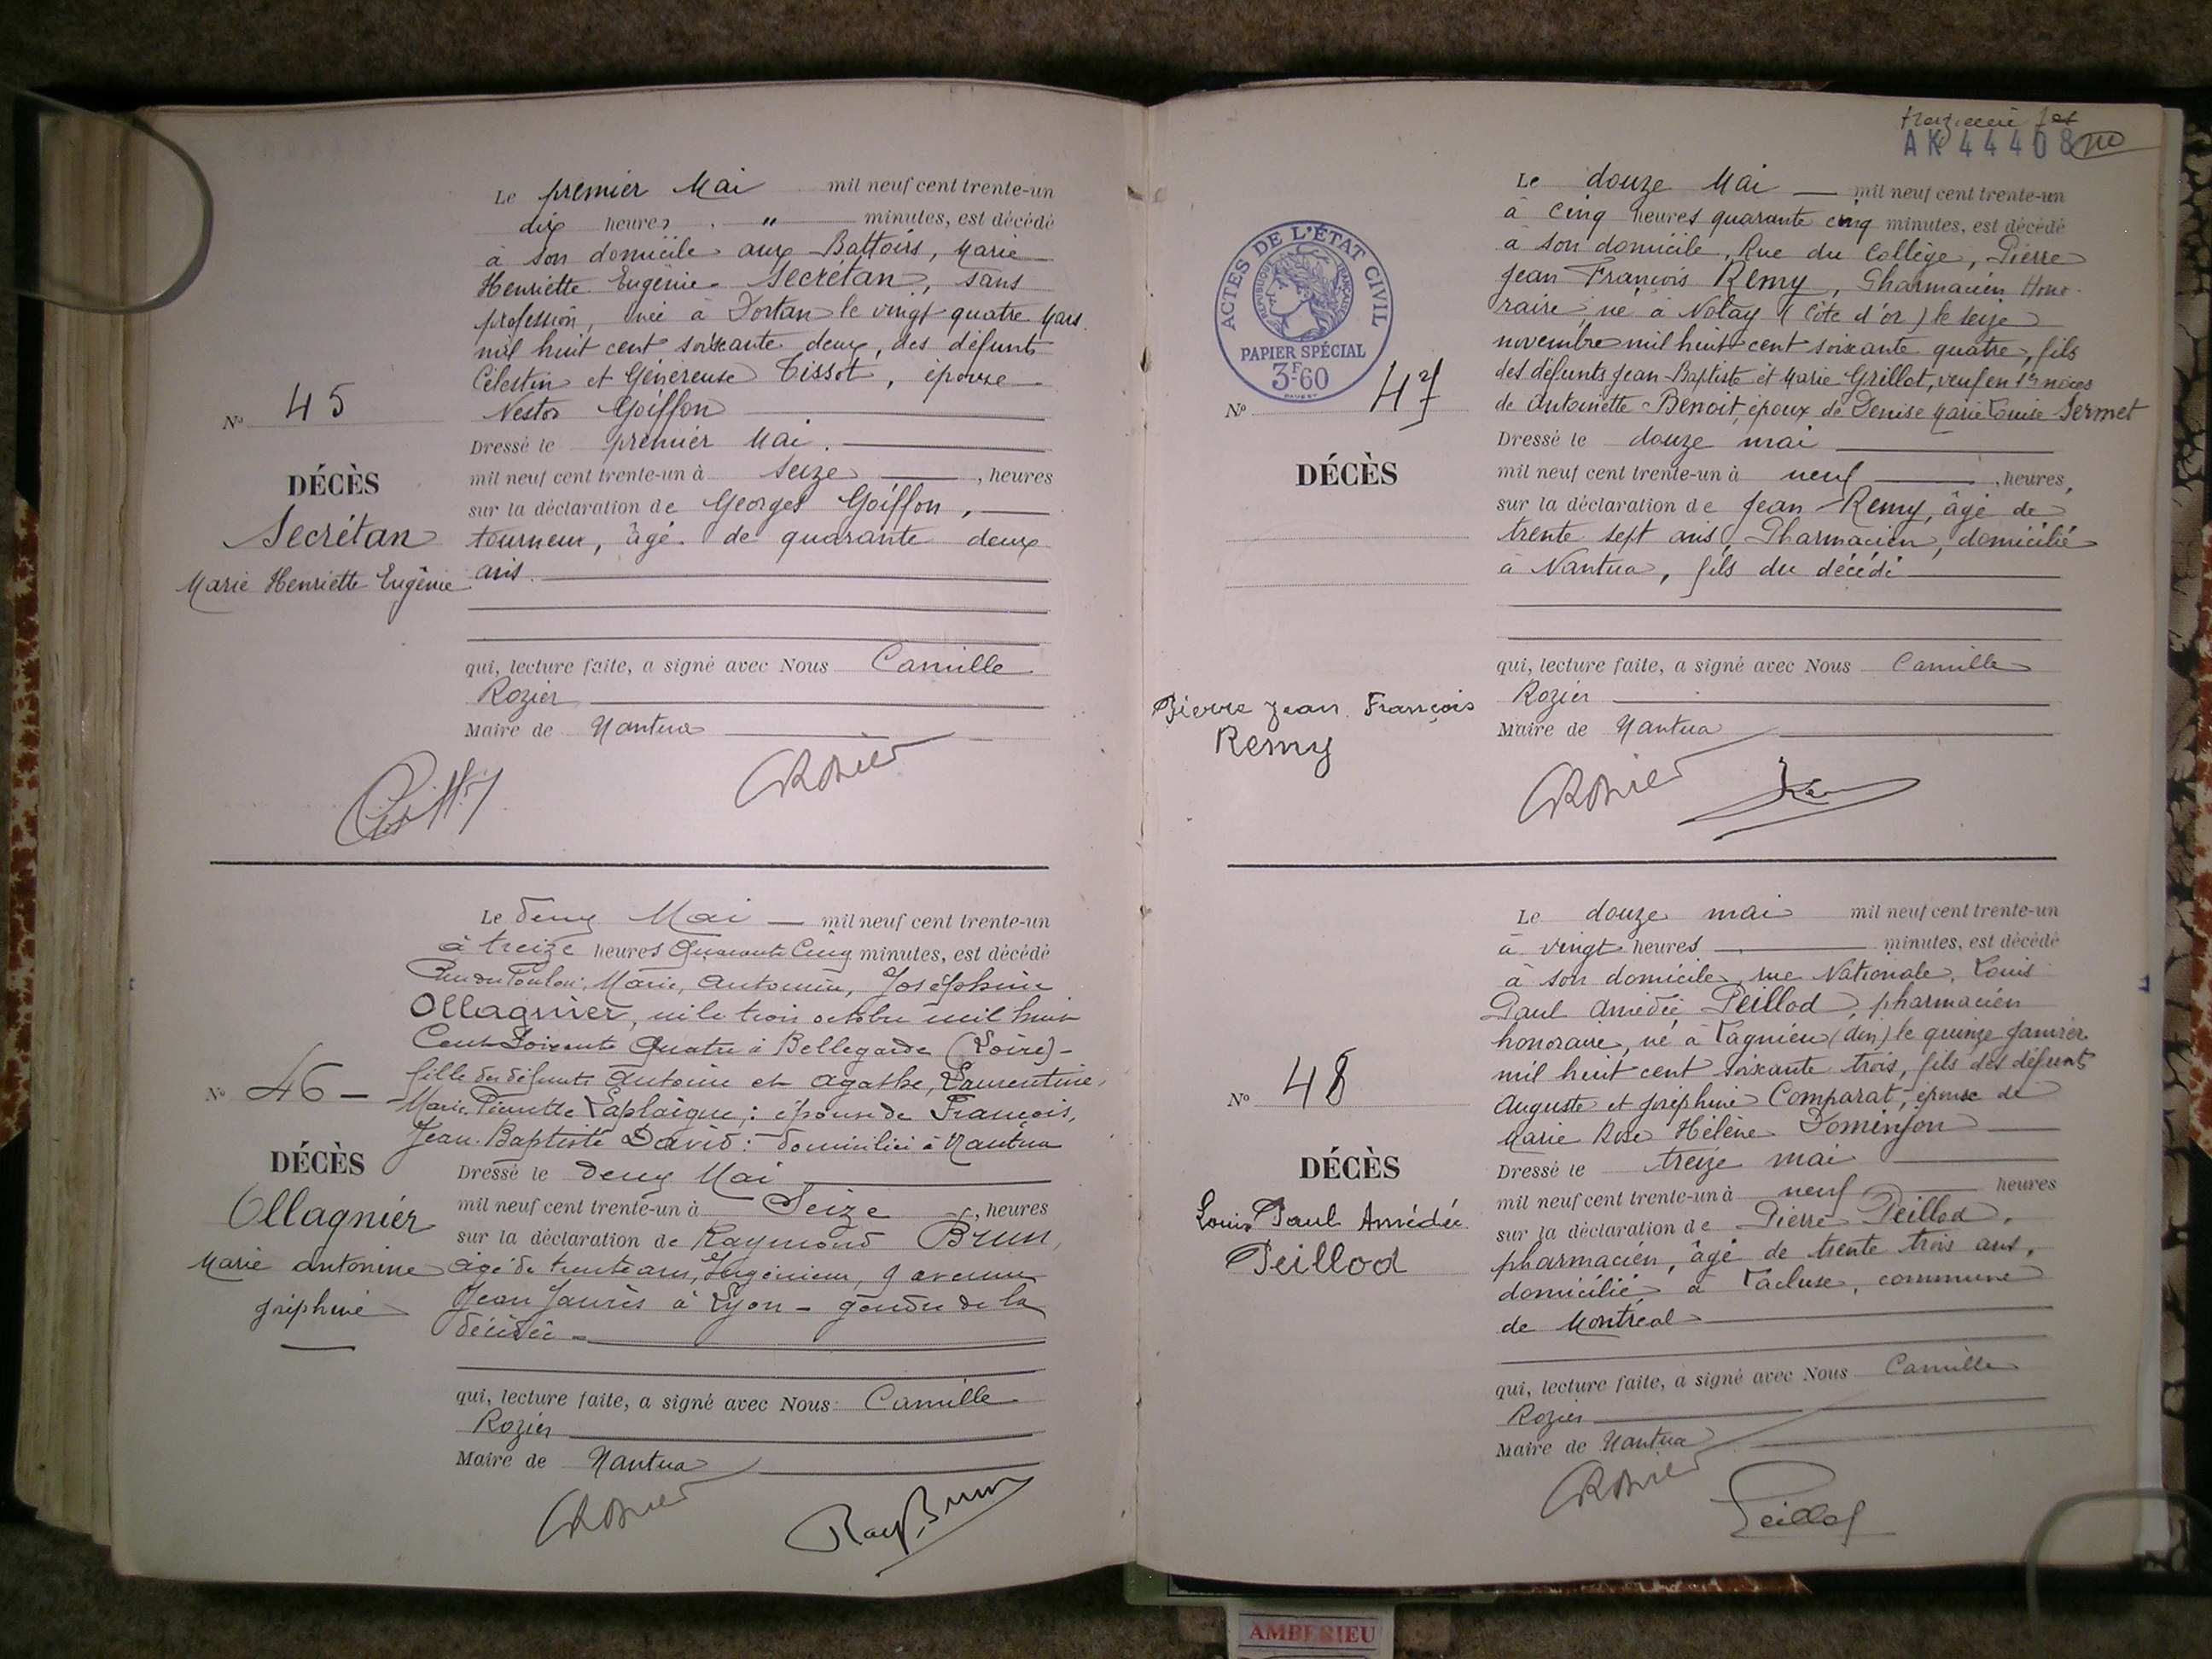 Le premier Mai mil neuf cent trente-un
dix heures " minutes, est décédé
à son domicile aux Battoirs, Marie
Henriette Eugénie Secrétan, sans
profession, née à Dortan le vingt quatre Mars
mil huit cent soixante deux, des défunts
Célestin et Généreuse Tissot, épouse
Nestor Goiffon
Nº 45
Dressé le premier Mai
mil neuf cent trente-un à seize, heures
DÉCÈS
sur la déclaration de Georges Goiffon,
Secrétan
tourneur, âgé de quarante deux
Marie Henriette Eugénie
ans.
qui, lecture faite, a signé avec Nous Camille
Rozier
Maire de Nantua
CRozier
Le deux Mai mil neuf cent trente-un
à treize heures Quarante Cinq minutes, est décédé
Marie, Antonine, Joséphine
Ollagnier, née le trois octobre mil huit
Cent Soixante Quatre à Bellegarde (Loire) -
fille des défunts Antoine et Agathe, Laurentine,
Nº 46 -
Marie Pierrette Laplaigue; épouse de François,
Jean-Baptiste David: domiciliée à Nantua
DÉCÈS
Dressé le deux Mai
Ollagnier
mil neuf cent trente-un à Seize, heures
sur la déclaration de Raymond Brun,
Marie Antonine
âgé de trente ans, Ingénieur, 9 avenue
Joséphine
Jean Jaurès à Lyon - gendre de la
décédée -
qui, lecture faite, a signé avec Nous Camille
Rozier
Maire de Nantua
CRozier
Ray Brun
AK 44408
Le douze Mai mil neuf cent trente-un
à cinq heures quarante cinq minutes, est décédé
à son domicile, Rue du Collège, Pierre
Jean François Remy, Pharmacien Hono-
raire, né à Nolay (Côte d'or) le seize
novembre mil huit cent soixante quatre, fils
des défunts Jean-Baptiste et Marie Grillot, veuf en 1res noces
de Antoinette Benoit, époux de Denise Marie Louise Sermet
ACTES DE L'ÉTAT CIVIL
RÉPUBLIQUE FRANÇAISE
PAPIER SPÉCIAL
3F60
Nº 47
Dressé le douze mai
DÉCÈS
mil neuf cent trente-un à neuf, heures,
sur la déclaration de Jean Remy, âgé de
trente sept ans, Pharmacien, domicilié
à Nantua, fils du décédé
qui, lecture faite, a signé avec Nous Camille
Pierre Jean François
Remy
Rozier
Maire de Nantua
CRozier
Le douze mai mil neuf cent trente-un
à vingt heures minutes, est décédé
à son domicile, rue Nationale, Louis
Paul Amédée Peillod, pharmacien
honoraire, né à Lagnieu (Ain) le quinze janvier
mil huit cent soixante trois, fils des défunts
Auguste et Joséphine Comparat, épouse de
Marie Rose Hélène Dominjon
Nº 48
DÉCÈS
Dressé le treize mai
mil neuf cent trente-un à neuf heures
Louis Paul Amédée
Peillod
sur la déclaration de Pierre Peillod,
pharmacien, âgé de trente trois ans,
domicilié à Lacluse, commune
de Montréal
qui, lecture faite, a signé avec Nous Camille
Rozier
Maire de Nantua
CRozier
Peillod
AMBERIEU